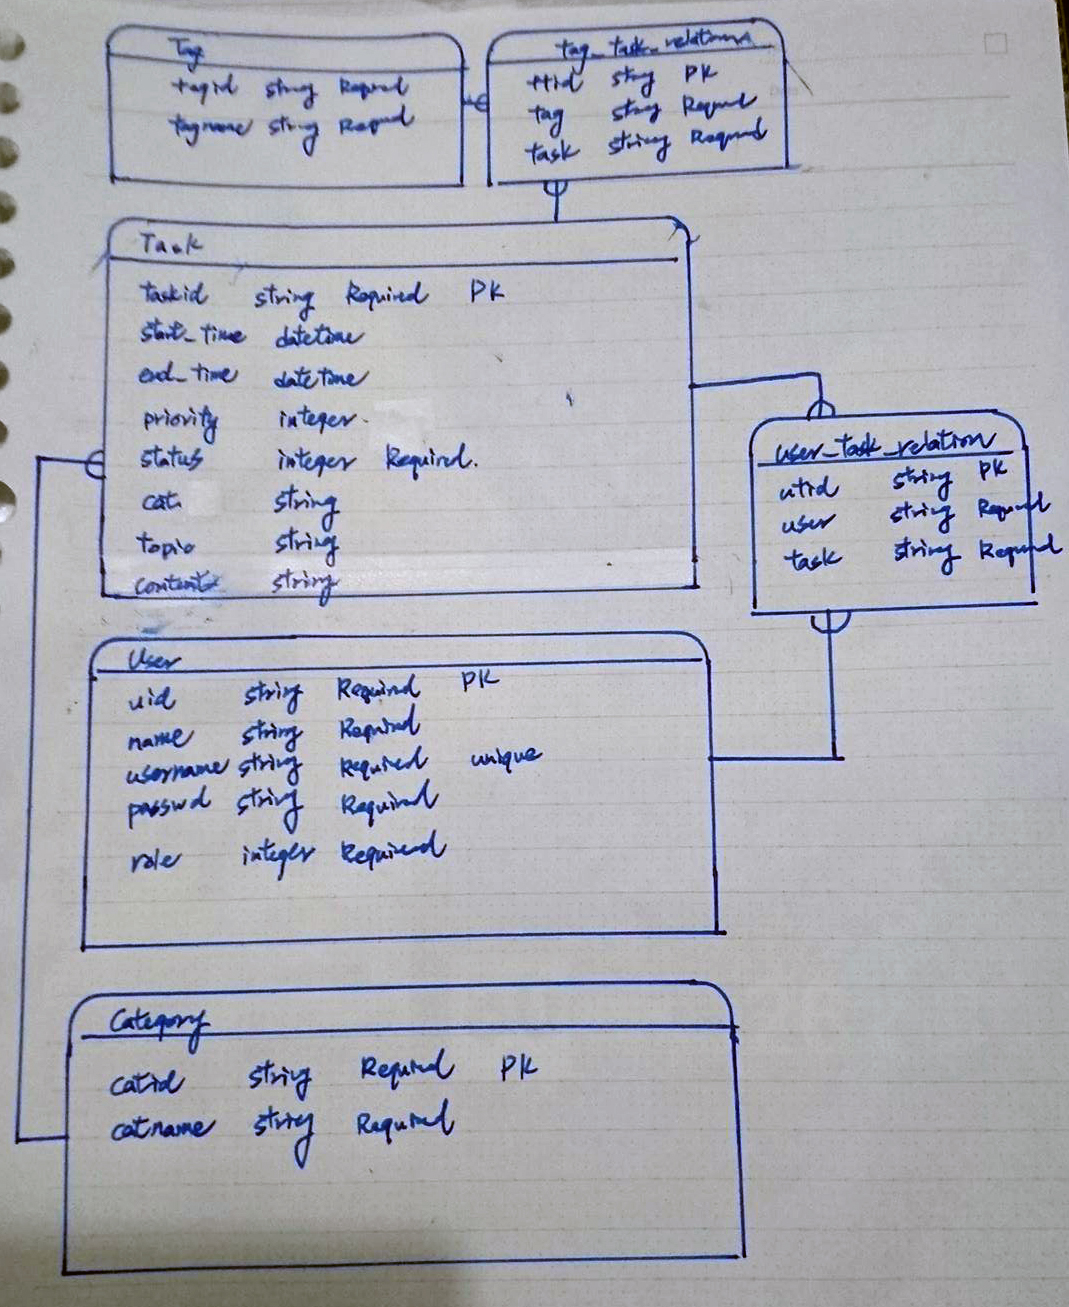 Tag
tagid string Required
tagname string Required
tag_task_relation
ttid string PK
tag string Required
task string Required
Task
taskid string Required PK
start_time datetime
end_time datetime
priority integer
status integer Required.
cat string
topic string
content string
user_task_relation
utid string PK
user string Required
task string Required
User
uid string Required PK
name string Required
username string Required unique
passwd string Required
role integer Required
Category
catid string Required PK
catname string Required